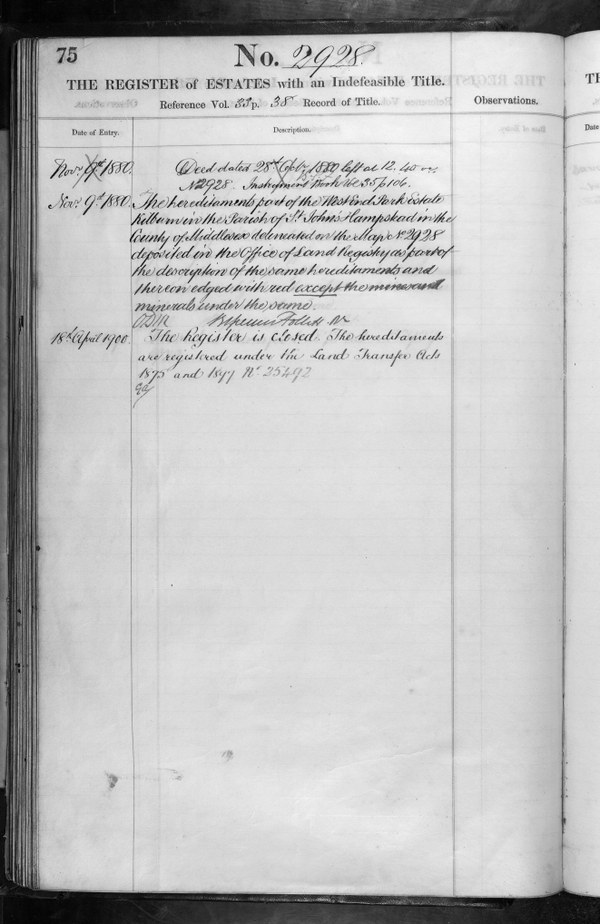 75
No. 2928.
THE REGISTER of ESTATES with an Indefeasible Title.
Reference Vol. 33 p. 38 Record of Title.
Observations.
Date of Entry.
Description.
Novr. 9th 1880.
Deed dated 28th Octr. 1880 left at 12.40
No 2928. Instrument Book Vol 35 p 106.
Novr. 9th 1880.
The hereditaments part of the West End Park Estate
Kilburn in the Parish of St. John's Hampstead in the
County of Middlesex delineated on the Map No 2928
deposited in the Office of Land Registry as part of
the description of the same hereditaments and
thereon edged with red except the mines and
minerals under the same.
18th April 1900.
The Register is closed. The hereditaments
are registered under the Land Transfer Acts
1875 and 1897 No. 25492